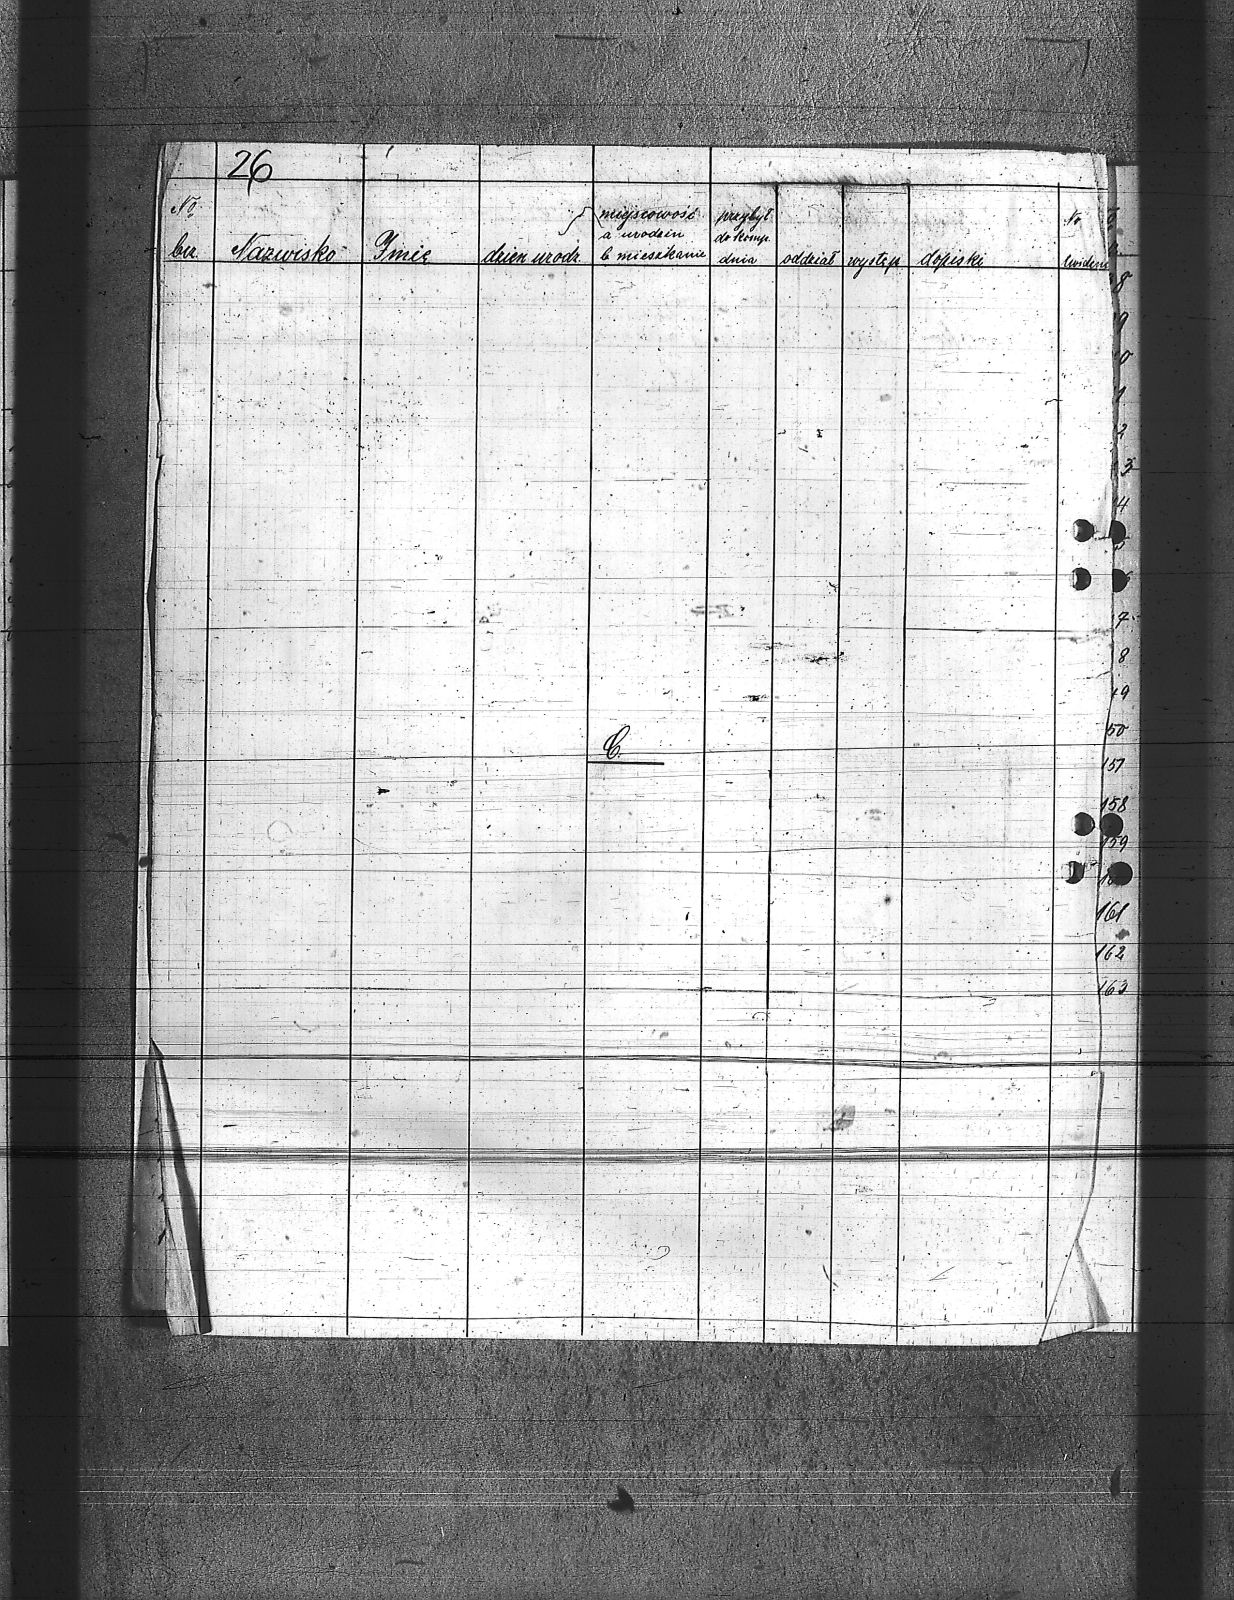 26
No. bież. Nazwisko Imię dzień urodz. miejscowość a urodzin b mieszkanie przybył do komp. dnia oddział występ dopiski No.
8
9
0
1
2
3
4
5
7
8
9
C.
50
157
158
159
161
162
163